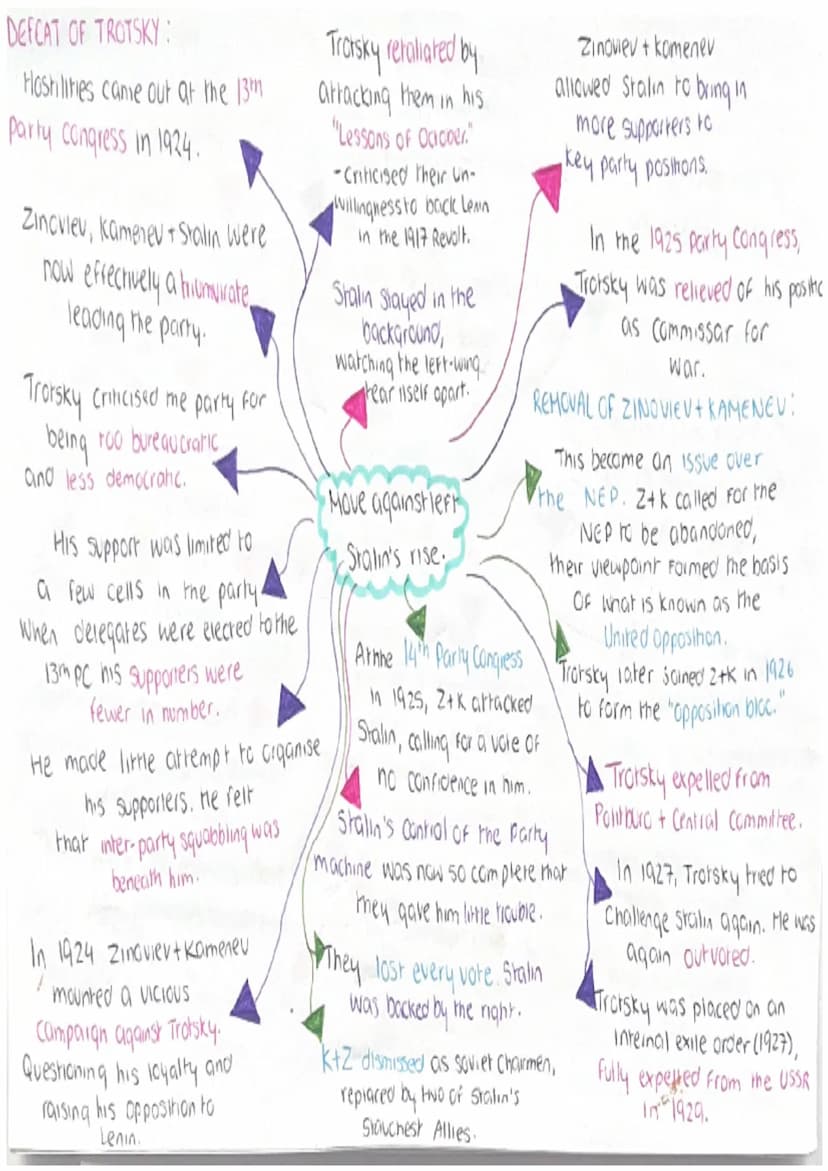 DEFEAT OF TROTSKY:
Hostilities came out at the 13th
Party Congress in 1924.
Zinoviev, Kamenev + Stalin were
now effectively a triumvirate
leading the party.
Trotsky criticised the party for
being too bureaucratic
and less democratic.
His support was limited to
a few cells in the party
When delegates were elected to the
13th PC his supporters were
fewer in number.
He made little attempt to organise
his supporters. He felt
that inter-party squabbling was
beneath him.
In 1924 Zinoviev + Kamenev
mounted a vicious
campaign against Trotsky.
Questioning his loyalty and
raising his opposition to
Lenin.
Trotsky retaliated by
attacking them in his
"Lessons of October."
- Criticised their un-
willingness to back Lenin
in the 1917 Revolt.
Stalin stayed in the
background,
watching the left-wing
tear itself apart.
Move against left
Stalin's rise.
At the 14th Party Congress
in 1925, Z+K attacked
Stalin, calling for a vote of
no confidence in him.
Stalin's control of the party
machine was now so complete that
they gave him little trouble.
They lost every vote. Stalin
was backed by the right.
K+Z dismissed as Soviet Chairmen,
replaced by two of Stalin's
Staunchest Allies.
Zinoviev + Kamenev
allowed Stalin to bring in
more supporters to
key party positions.
In the 1925 Party Congress,
Trotsky was relieved of his positio
as Commissar for
War.
REMOVAL OF ZINOVIEV + KAMENEV:
This became an issue over
the NEP. Z+K called for the
NEP to be abandoned,
their viewpoint formed the basis
of what is known as the
United Opposition.
Trotsky later joined Z+K in 1926
to form the "opposition bloc."
Trotsky expelled from
Politburo + Central Committee.
In 1927, Trotsky tried to
Challenge Stalin again. He was
again outvoted.
Trotsky was placed on an
internal exile order (1927),
fully expelled from the USSR
in 1929.